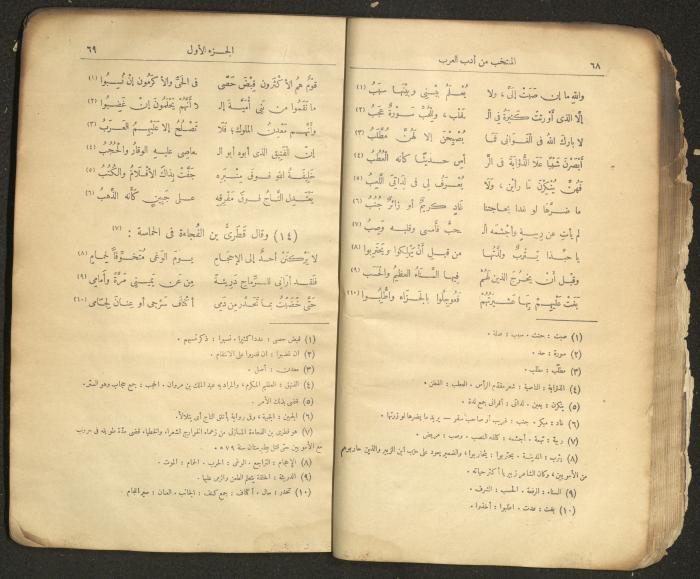 ٦٨
المنتخب من أدب العرب
والله ما إن صَبَتْ إلىَّ، ولا يُعْلَمُ بيْنِى وبيْنَهَا سبَبُ (١)
إلّا الذى أَوْرثَتْ كثِيرةُ فى الـ قَلْبِ، ولِلْحُبِّ سَوْرَةٌ عَجَبُ (٢)
لا بارك اللهُ فى الغَوَانى فَمَا يُصْبِحْنَ إلا لَهُنَّ مُطَّلَبُ (٣)
أبْصَرْنَ شَيْبًا عَلَا الذُّؤابَةَ فى الرَّ أسِ حديثًا كأنه العُطُبُ (٤)
فَهُنَّ يُنْكِرْنَ ما رأَيْنَ، ولا يُعْرَفُ لى فى لِدَاتىَ اللَّعِبُ (٥)
ما ضرَّها لو غدا بحاجتنا غادٍ كريمٌ أو زائرٌ جُنُبُ (٦)
لم يأتِ عن رِيبةٍ وأجْشَمَه الـ حبُّ فأمسى وقلبه وَصِبُ (٧)
يا حبذا يثربٌ ولذَّتُها من قبلِ أنْ يَهْلِكوا ويَحْتَرِبُوا (٨)
وقَبْلَ أن يخرجَ الذين لهمْ فيها السَّناءُ العظيمُ والحَسَبُ (٩)
بَغَتْ عليهمْ بها عشيرَتُهُمْ فَعُوجِلُوا بالجزاء واطُّلِبُوا (١٠)
(١) صبت : حنت . سبب : صلة .
(٢) سورة : حدة .
(٣) مطّلب : مطلب .
(٤) الذؤابة : الناصية : شعر مقدم الرأس . العطب : القطن .
(٥) ينكرن : يعبن . لداتى : أقرانى جمع لدة .
(٦) غاد : مبكر . جنب : غريب أو صاحب سفر — يريد ما يضرها لو زرتها .
(٧) ريبة : تهمة . أجشمه : كلفه النصب . وصب : مريض .
(٨) يثرب : المدينة . يحتربوا : يتحاربوا ؛ والضمير يعود على حزب ابن الزبير والذين حاربوهم
من الأمويين ، وكان الشاعر زبيريا أكثر حياته .
(٩) السناء : الرفعة . الحسب : الشرف .
(١٠) بغت : عدت . اطلبوا : أخذوا .
الجزء الأول
٦٩
قومٌ همُ الأكثَرون قِبْضَ حَصًى فى الحَىِّ والأكرَمُون إنْ نُسِبُوا (١)
ما نَقَمُوا من بَنِى أُمَيَّةَ إلا أنَّهُمْ يَحْلُمُونَ إنْ غَضِبُوا (٢)
وأنَّهم معْدِنُ الملوك؛ فَلَا تَصْلُحُ إلا عَلَيْهِمُ العَرَبُ (٣)
إن الفَنِيقَ الذى أبوه أبو الـ عاصِى عليه الوقارُ والحُجُبُ (٤)
خليفةُ الله فوق منْبَرِه جَفَّتْ بذاكَ الأقلامُ والكُتُبُ (٥)
يَعْتَدِلُ التَّاجُ فوقَ مَفْرِقِه على جَبِينٍ كأَنَّه الذَّهَبُ (٦)
(١٤) وقال قَطَرىُّ بن الفُجاءة فى الحماسة : (٧)
لا يَرْكَنَنْ أحدٌ إلى الإحجامِ يومَ الوَغَى مُتَخَوِّفًا لِحِمَامِ (٨)
فلقد أرانى للرِّماح دَرِيئةً مِن عَن يَمِينى مَرَّةً وأمامى (٩)
حتَّى خَضَبْتُ بما تَحَدَّرَ مِن دَمِى أكنافَ سَرْجِى أو عِنانَ لجَامى (١٠)
(١) قبض حصى : عددا كثيرا . نسبوا : ذكر نسبهم .
(٢) إن غضبوا : إن قدروا على الانتقام .
(٣) معدن : أصل .
(٤) الفنيق : العظيم المكرم ، والمراد به عبد الملك بن مروان . الحجب : جمع حجاب وهو الستر .
(٥) قضى بذلك الأمر .
(٦) الجبين : الجبهة ، وفى رواية يأتلق التاج أى يتلألأ .
(٧) هو قطرى بن الفجاءة المازنى من زعماء الخوارج الشعراء والخطباء قضى مدّة طويلة فى حروب
مع الأمويين حتى قتل بطبرستان سنة ٧٩ هـ .
(٨) الإحجام : التراجع . الوغى : الحرب . الحمام : الموت .
(٩) الدريئة : الحلقة يتعلم الطعن والرمى عليها .
(١٠) تحدّر : سال . أكناف : جمع كنف : الجانب . العنان : سير اللجام